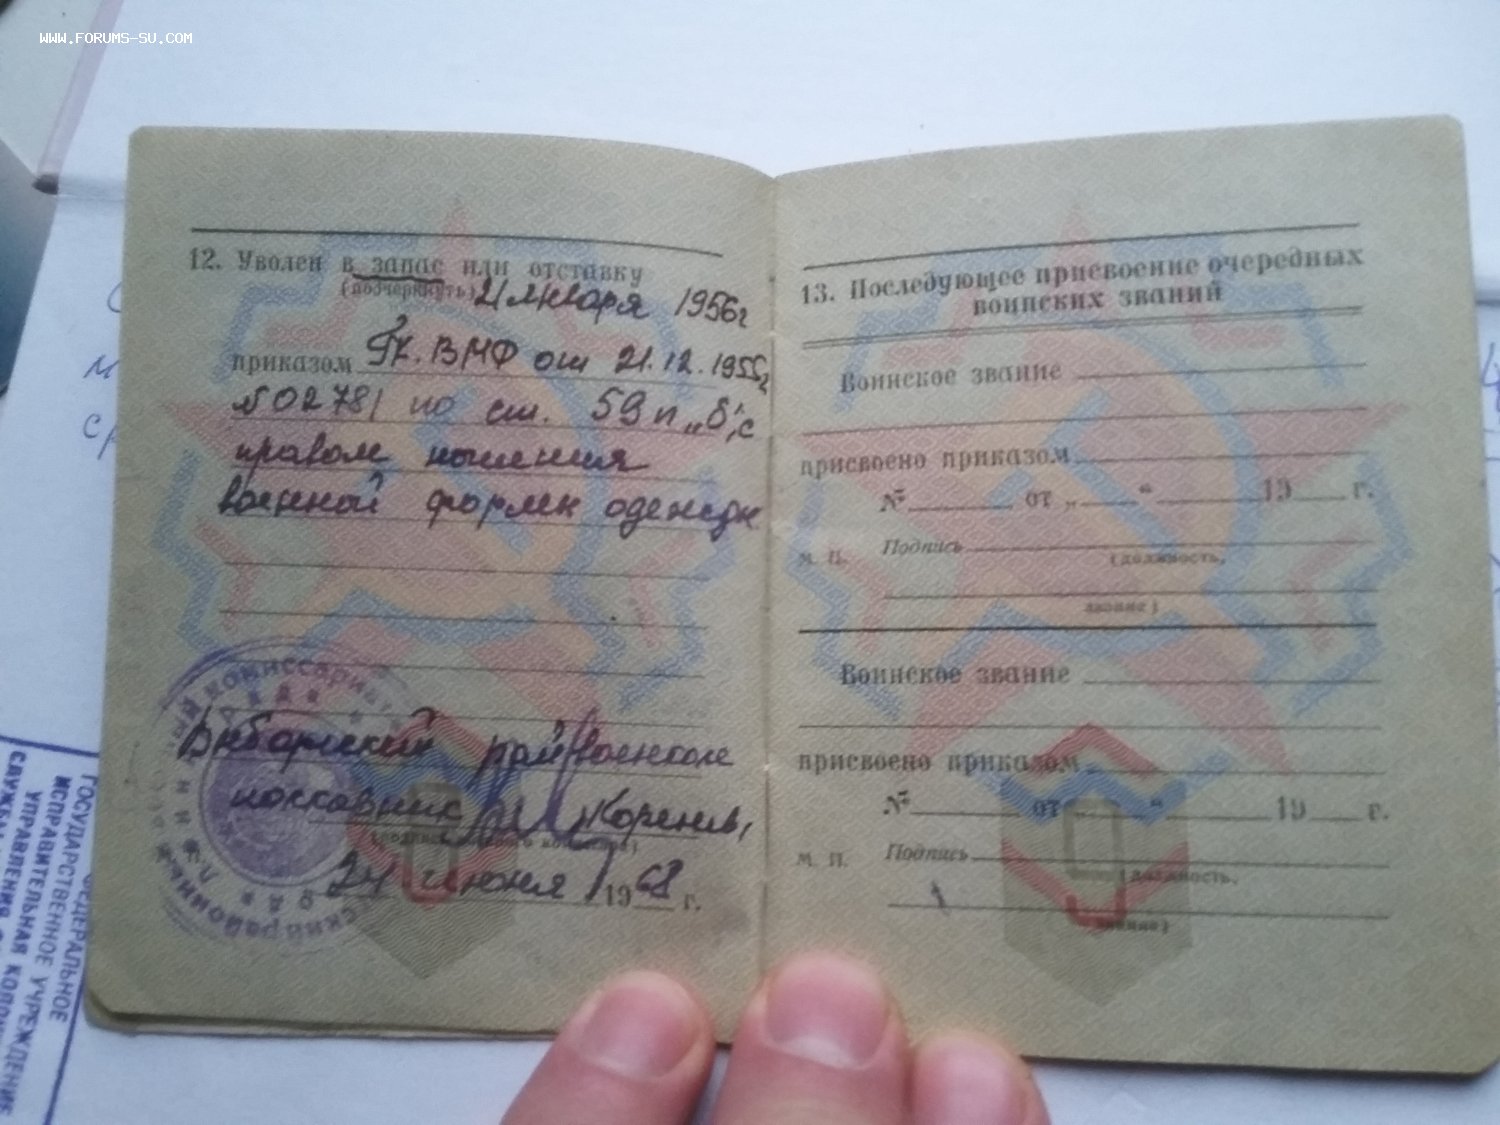 WWW.FORUMS-SU.COM
12. Уволен в запас или отставку
(подчеркнуть) 21 января 1956г
приказом ГК. ВМФ от 21.12.1955г
№ 02781 по ст. 59 п „б", с
правом ношения
военной формы одежды
Выборгский райвоенком
полковник Коренев,
24 июня 1968 г.
13. Последующее присвоение очередных
воинских званий
Воинское звание
присвоено приказом
№ от „ “ 19 г.
М. П. Подпись
(должность,
звание)
Воинское звание
присвоено приказом
№ от „ “ 19 г.
М. П. Подпись
(должность,
звание)
ГОСУДАРСТВЕННОЕ УЧРЕЖДЕНИЕ
ИСПРАВИТЕЛЬНАЯ
УПРАВЛЕНИЯ